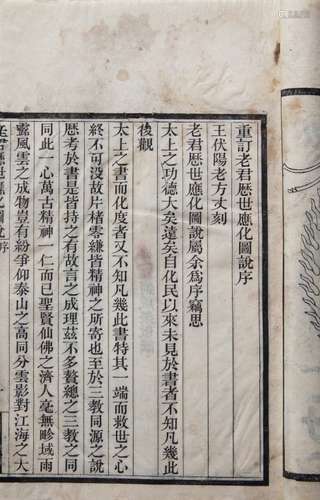 重訂老君歷世應化圖說序
王伏陽老方丈刻
老君歷世應化圖說屬余為序竊思
太上之功德大矣遠矣自化民以來未見於書者不知凡幾此
後觀
太上之書而化度者又不知凡幾此書特其一端而救世之心
終不可沒故片楮零縑皆精神之所寄也至於三教同源之說
歷考於書是皆持之有故言之成理茲不多贅總之三教之同
同此一心萬古精神一仁而已聖賢仙佛之濟人毫無畛域雨
露風雲之成物豈有紛爭仰泰山之高同分雲影對江海之大
老君歷世應化圖說 序